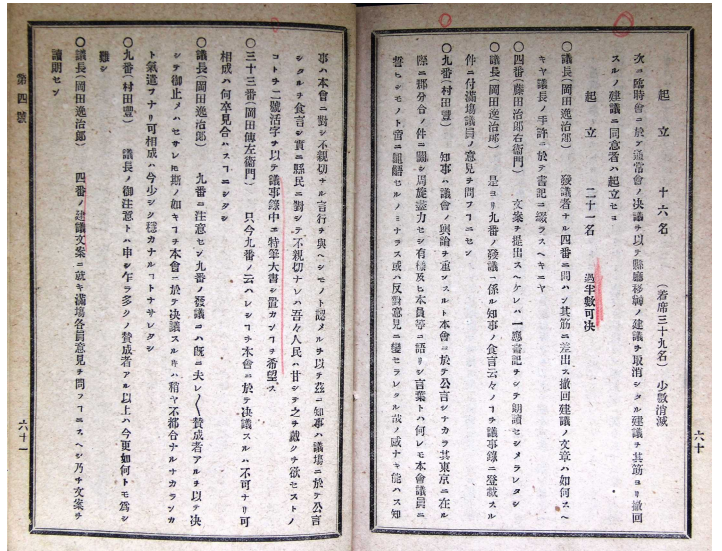 起立　十六名　（着席三十九名）　少數消滅
次ニ臨時會ニ於テ通常會ノ決議ヲ以テ縣廳移轉ノ建議ヲ取消シタル建議ヲ其筋ヨリ撤回
スルノ建議ニ同意者ハ起立セヨ
起立　二十一名　過半數可決
〇議長（岡田逸治郎）　發議者ナル四番ニ問ハン其筋ニ差出ス撤回建議ノ文章ハ如何スヘ
キヤ議長ノ手許ニ於テ書記ニ綴ラスヘキニヤ
〇四番（藤田治郎右衞門）　文案ヲ提出スヘケレハ一應書記ヲシテ朗讀セシメラレタシ
〇議長（岡田逸治郎）　是ヨリ九番ノ發議ニ係ル知事ノ食言云々ノコヲ議事錄ニ登載スル
件ニ付滿塲議員ノ意見ヲ問フコニセン
〇九番（村田豐）　知事ハ議會ノ輿論ヲ重ンスルト本會ニ於テ公言シタカラ其東京ニ在ル
際ニ郡分合ノ件ニ關シ周旋盡力セシ有樣及ヒ本員等ニ語リシ言葉トハ何レモ本會議員ニ
誓ヒシモノト啻ニ齟齬セルノミナラス或ハ反對意見ニ變セラレタル哉ノ感ナキ能ハス知
六十
事ハ本會ニ對シ不親切ナル言行ヲ與ヘシモノト認メルヲ以テ茲ニ知事ハ議塲ニ於テ公言
シタルヲ食言シ實ニ縣民ニ對シテ不親切ナレハ吾々人民ハ甘シテ之ヲ戴クヲ欲セストノ
コトヲ二號活字ヲ以テ議事錄中ニ特筆大書シ置カンコヲ希望ス
〇三十三番（岡田傳左衞門）　只今九番ノ云ハレシコヲ本會ニ於テ決議スルハ不可ナリ可
相成ハ何卒見合ハスコニシタシ
〇議長（岡田逸治郎）　九番ニ注意セン九番ノ發議ニハ既ニ夫レ〱贊成者アルヲ以テ決
シテ御止メハセサレ𪜈斯ノ如キコヲ本會ニ於テ決議スル𪜈ハ稍ヤ不都合ナルナカランカ
ト氣遣フナリ可相成ハ今少シク穩カナルコトナサレタシ
〇九番（村田豐）　議長ノ御注意トハ申シ乍ラ多クノ贊成者アル以上ハ今更如何トモ爲シ
難シ
〇議長（岡田逸治郎）　四番ノ建議文案ニ就キ滿塲各員意見ヲ問フコニスヘシ乃チ文案ヲ
讀明セン
第四號
六十一